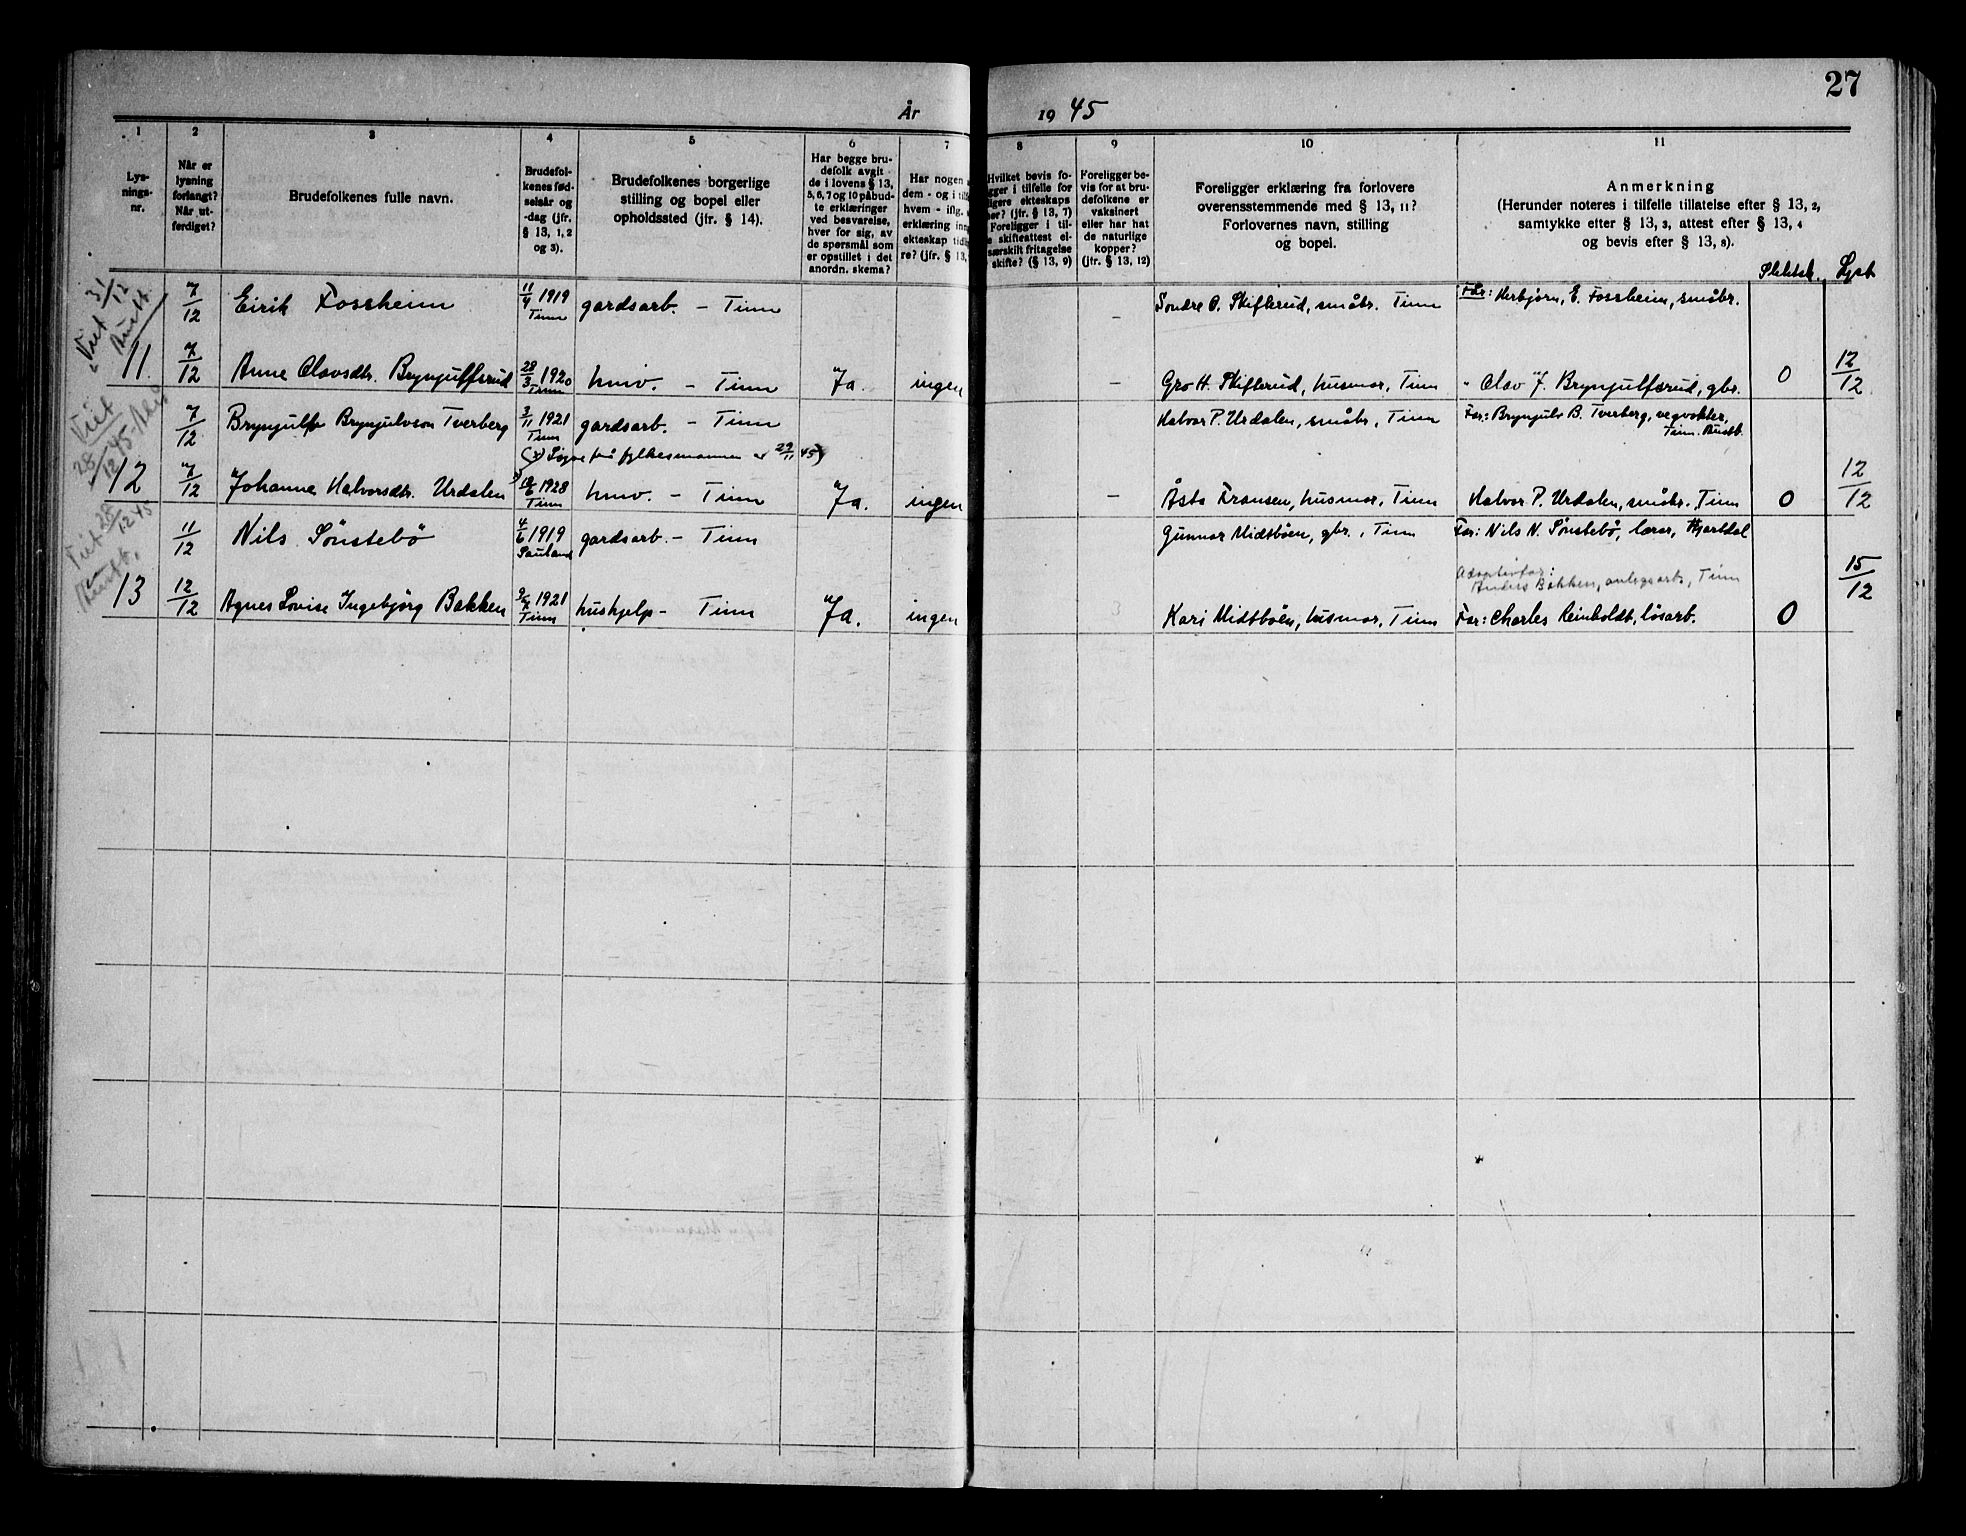 27
År 19 45
1 2 3 4 5 6 7 8 9 10 11
Lys-
nings-
nr.
Når er
lysning
forlangt?
Når ut-
ferdiget?
Brudefolkenes fulle navn.
Brudefol-
kenes fød-
selsår og
-dag (jfr.
§ 13, 1, 2
og 3).
Brudefolkenes borgerlige
stilling og bopel eller
opholdssted (jfr. § 14).
Har begge bru-
defolk avgit
de i lovens § 13,
5, 6, 7 og 10 påbud-
te erklæringer
ved besvarelse,
hver for sig, av
de spørsmål som
er opstillet i det
anordn. skema?
Har nogen
dem - og i
hvem - iflg.
erklæring
ekteskap
re? (jfr. § 13,
Hvilket bevis fo-
gger i tilfelle for
ligere ekteskaps
(jfr. § 13, 7)
Foreligger i til-
e skifteattest el-
særskilt fritagelse
skifte? (§ 13, 9)
Foreligger be-
vis for at bru-
defolkene er
vaksinert
eller har hat
de naturlige
kopper?
(jfr. § 13, 12)
Foreligger erklæring fra forlovere
overensstemmende med § 13, 11?
Forlovernes navn, stilling
og bopel.
Anmerkning
(Herunder noteres i tilfelle tillatelse efter § 13, 2,
samtykke efter § 13, 3, attest efter § 13, 4
og bevis efter § 13, 8).
Slektsk. Lyst
Viet 31/12 Austb.
7/12 Eirik Fossheim 11/4 1919 Tinn gardsarb. - Tinn - Sondre O. Skifterud, småbr. Tinn Far: Herbjørn E. Fossheim, småbr.
11. 7/12 Anne Olavsdtr. Brynjulfsrud 28/3 1920 Tinn hmv. - Tinn Ja. ingen - Gro H. Skifterud, husmor, Tinn " Olav J. Brynjulfsrud, gbr. 0 12/12
Viet 28/12 45
7/12 Brynjulv Brynjulvson Tverberg 3/11 1921 Tinn gardsarb. - Tinn Halvor P. Urdalen, småbr, Tinn Far: Brynjulv B. Tverberg, vegvokter,
Tinn Austb.
(x) Løyve frå fylkesmannen av 29/11 45)
12 7/12 Johanne Halvorsdtr. Urdalen x) 1928 Tinn hmv. - Tinn Ja. ingen - Åsta Fransen, husmor, Tinn Halvor P. Urdalen, småbr. Tinn 0 12/12
Viet 28/12 45 Austb.
11/12 Nils Sønstebø 4/6 1919 Sauland gardsarb. - Tinn Gunnar Midtbøen, gbr., Tinn Far: Nils N. Sønstebø, lærar, Hjartdal
Adoptivfar:
Anders Bakken, anlegsarb, Tinn
13 12/12 Agnes Lovise Ingebjørg Bakken 1921 Tinn hushjelp - Tinn Ja. ingen 3 Kari Midtbøen, husmor, Tinn Far: Charles Reinholdt, løsarb. 0 15/12